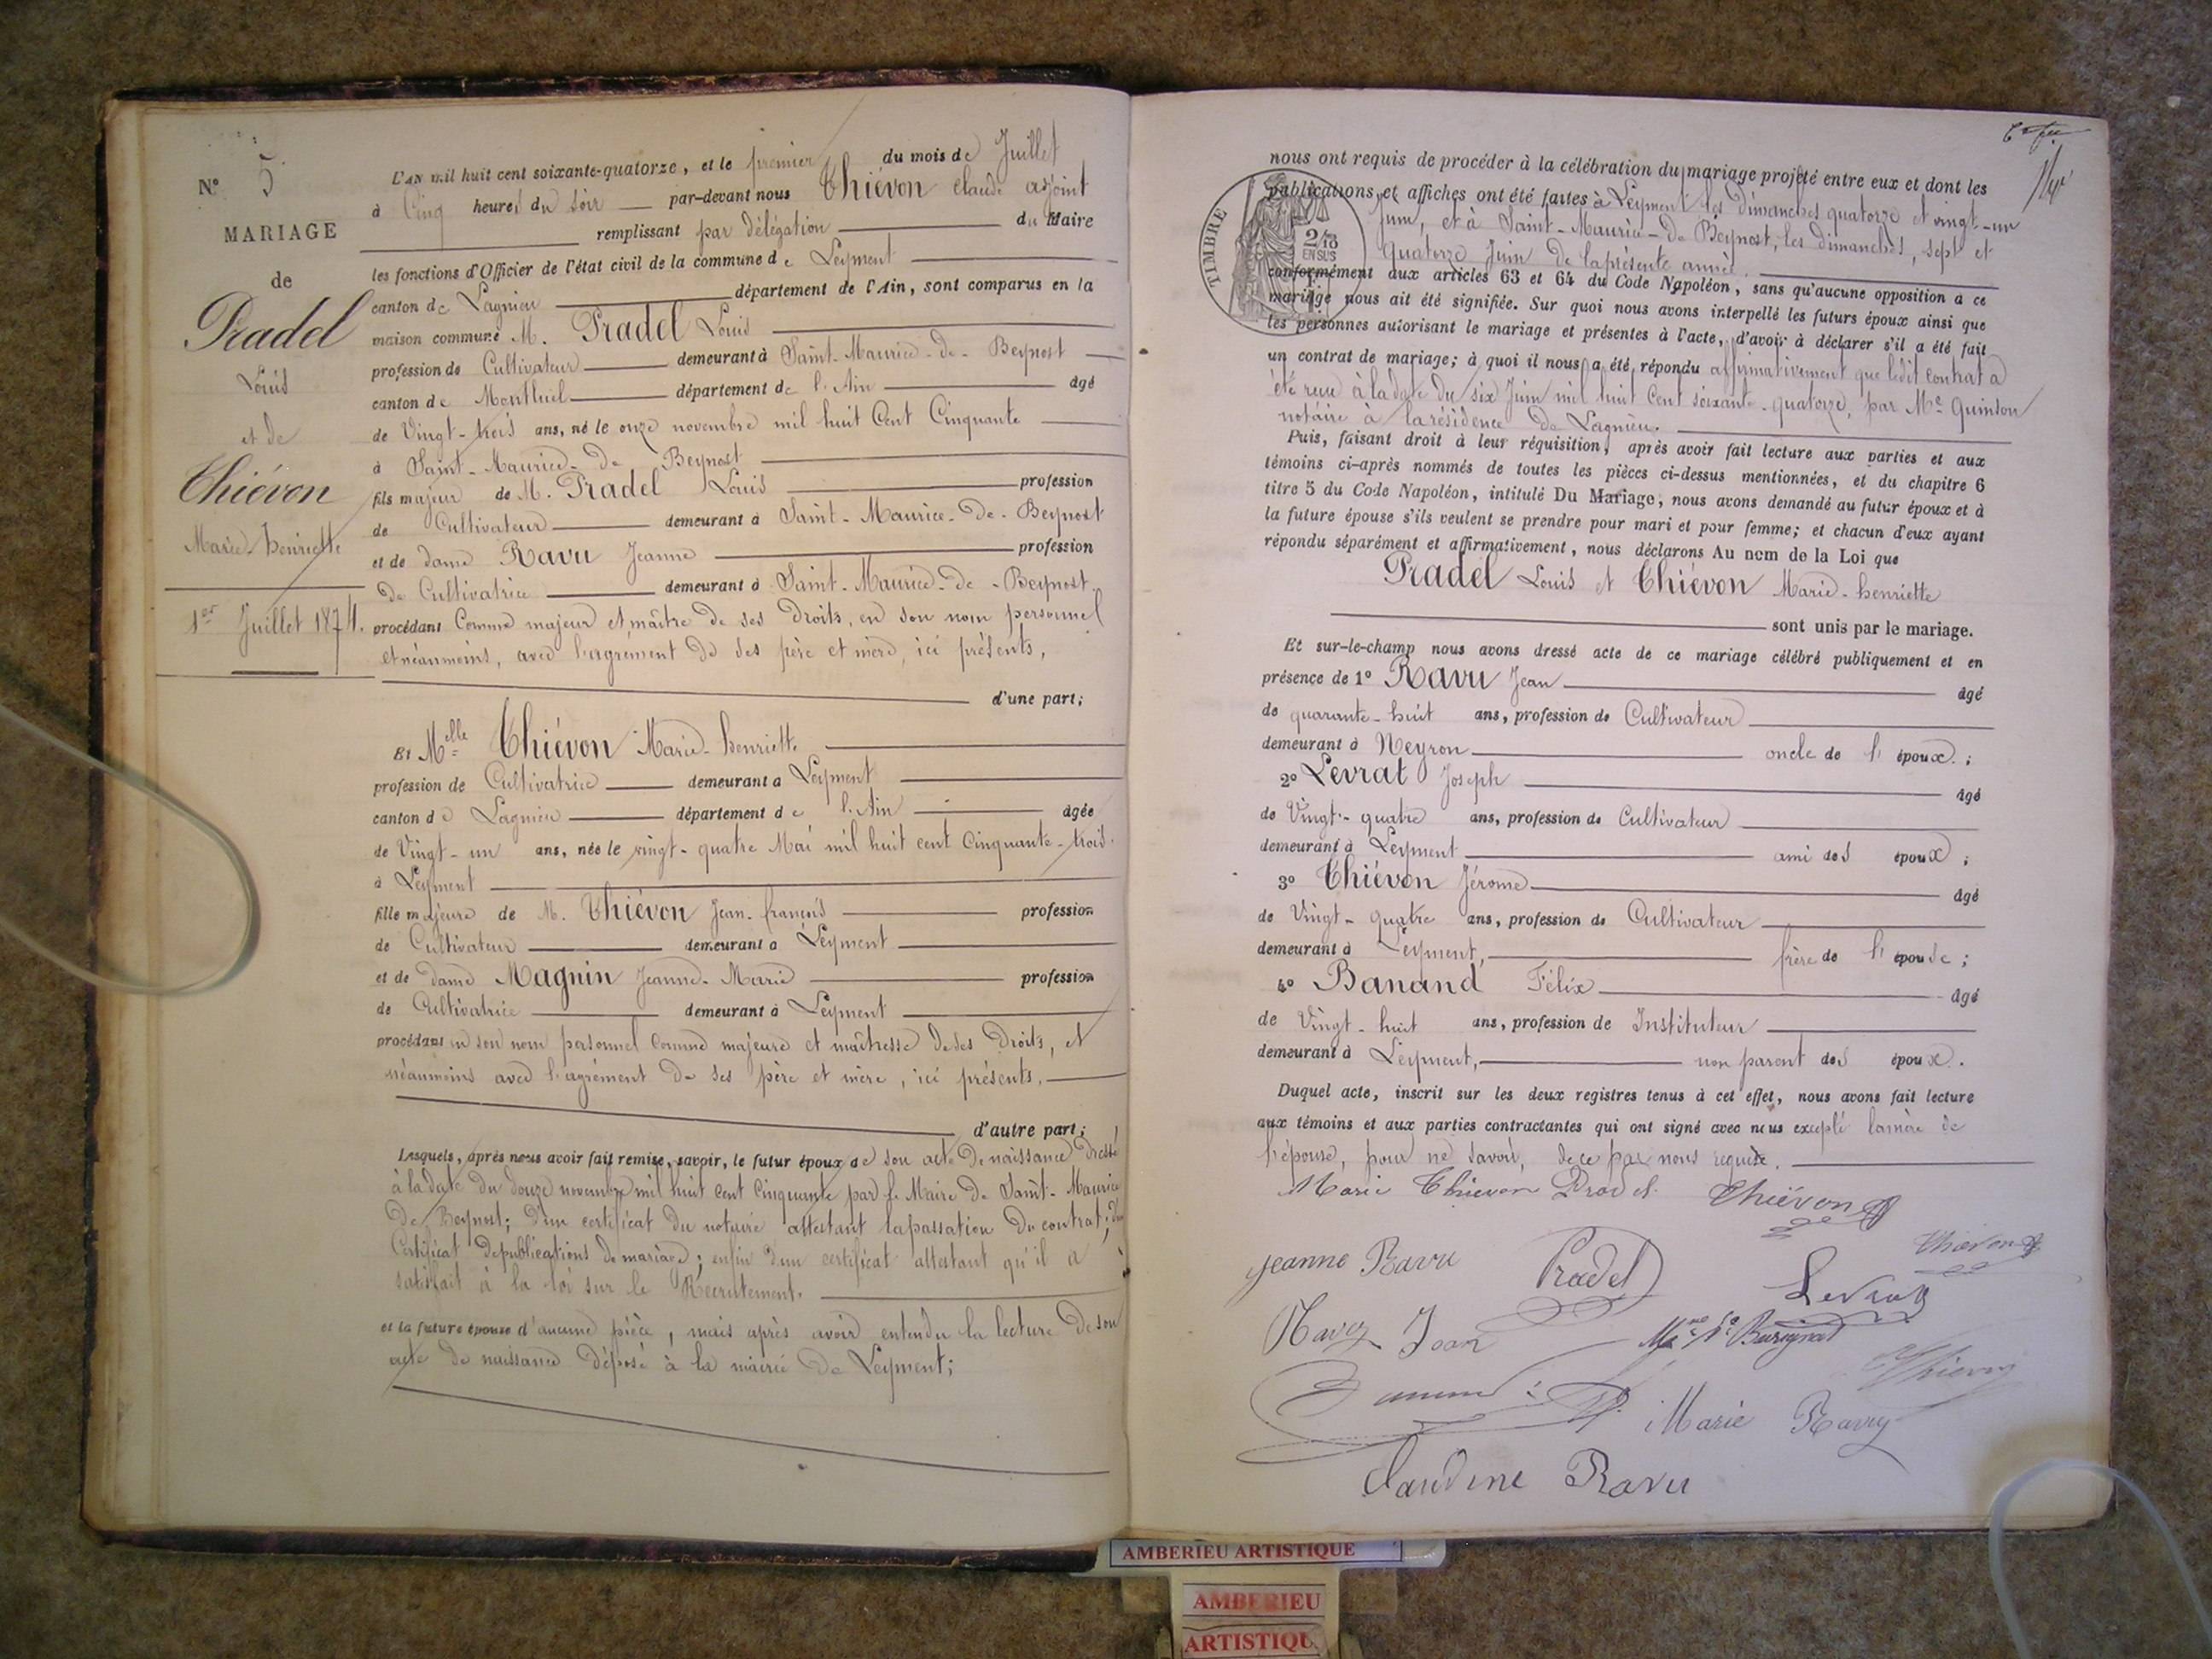 N° 5
MARIAGE
de
Pradel
Louis
et de
Thiévon
Marie-henriette
1er Juillet 1874.
L'AN mil huit cent soixante-quatorze, et le premier du mois de Juillet
à Cinq heures du soir par-devant nous Thiévon Claude adjoint
remplissant par délégation du Maire
les fonctions d'Officier de l'état civil de la commune de Leyment
canton de Lagnieu département de l'Ain, sont comparus en la
maison commune M. Pradel Louis
profession de Cultivateur demeurant à Saint-Maurice-de-Beynost
canton de Montluel département de l'Ain âgé
de Vingt-trois ans, né le onze novembre mil huit Cent Cinquante
à Saint-Maurice-de Beynost
fils majeur de M. Pradel Louis profession
de Cultivateur demeurant à Saint-Maurice-de-Beynost
et de dame Ravu Jeanne profession
de Cultivatrice demeurant à Saint-Maurice-de-Beynost
procédant Comme majeur et maître de ses droits, en son nom personnel
et néanmoins, avec l'agrément de ses père et mère, ici présents,
d'une part;
Et Melle Thiévon Marie-henriette
profession de Cultivatrice demeurant à Leyment
canton de Lagnieu département de l'Ain âgée
de Vingt-un ans, née le vingt-quatre Mai mil huit cent Cinquante-trois.
à Leyment
fille majeure de M. Thiévon Jean-françois profession
de Cultivateur demeurant à Leyment
et de dame Magnin Jeanne-Marie profession
de Cultivatrice demeurant à Leyment
procédant en son nom personnel comme majeure et maîtresse de ses Droits, et
néanmoins avec l'agrément de ses père et mère, ici présents.
d'autre part;
Lesquels, après nous avoir fait remise, savoir, le futur époux de son acte de naissance dressé
à la date du douze novembre mil huit cent Cinquante par le Maire de Saint-Maurice
De Beynost; d'un certificat du notaire attestant la passation du contrat; d'un
Certificat de publications de mariage; enfin d'un certificat attestant qu'il a
satisfait à la loi sur le Recrutement.
et la future épouse d'aucune pièce, mais après avoir entendu la lecture de son
acte de naissance déposé à la mairie de Leyment;
nous ont requis de procéder à la célébration du mariage projeté entre eux et dont les
publications et affiches ont été faites à Leyment les dimanches quatorze et vingt-un
Juin, et à Saint-Maurice-De Beynost, les dimanches, sept et
quatorze Juin de la présente année.
TIMBRE
2/10
EN SUS
conformément aux articles 63 et 64 du Code Napoléon, sans qu'aucune opposition à ce
mariage nous ait été signifiée. Sur quoi nous avons interpellé les futurs époux ainsi que
les personnes autorisant le mariage et présentes à l'acte, d'avoir à déclarer s'il a été fait
un contrat de mariage; à quoi il nous a été répondu affirmativement que ledit contrat a
été reçu à la date du six Juin mil huit Cent soixante-quatorze, par Me Quinson
notaire à la résidence de Lagnieu.
Puis, faisant droit à leur réquisition, après avoir fait lecture aux parties et aux
témoins ci-après nommés de toutes les pièces ci-dessus mentionnées, et du chapitre 6
titre 5 du Code Napoléon, intitulé Du Mariage, nous avons demandé au futur époux et à
la future épouse s'ils veulent se prendre pour mari et pour femme; et chacun d'eux ayant
répondu séparément et affirmativement, nous déclarons Au nom de la Loi que
Pradel Louis et Thiévon Marie-henriette
sont unis par le mariage.
Et sur-le-champ nous avons dressé acte de ce mariage célébré publiquement et en
présence de 1° Ravu Jean âgé
de quarante-huit ans, profession de Cultivateur
demeurant à Neyron oncle de l'époux;
2° Levrat Joseph âgé
de Vingt-quatre ans, profession de Cultivateur
demeurant à Leyment ami des époux;
3° Thiévon Jérome âgé
de Vingt-quatre ans, profession de Cultivateur
demeurant à Leyment, frère de l'épouse;
4° Banand Félix âgé
de Vingt-huit ans, profession de Instituteur
demeurant à Leyment, non parent des époux.
Duquel acte, inscrit sur les deux registres tenus à cet effet, nous avons fait lecture
aux témoins et aux parties contractantes qui ont signé avec nous excepté la mère de
l'épouse, pour ne savoir, de ce par nous requise.
Marie Thievon Pradel Thiévon
Jeanne Ravu Pradel Thiévon
Levrat
Ravu Jean
Marie Ravy
Claudine Ravu
AMBERIEU ARTISTIQUE
AMBERIEU
ARTISTIQU